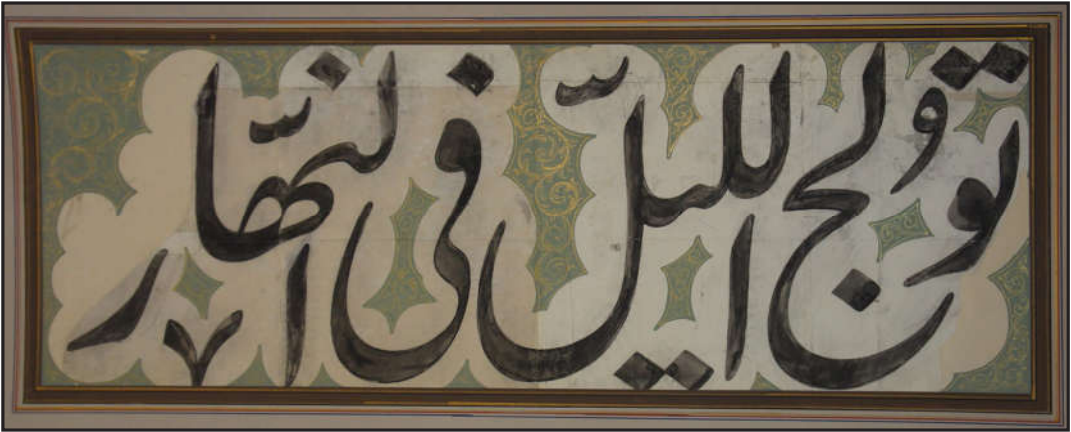 تُولج الليّل فى النّهار